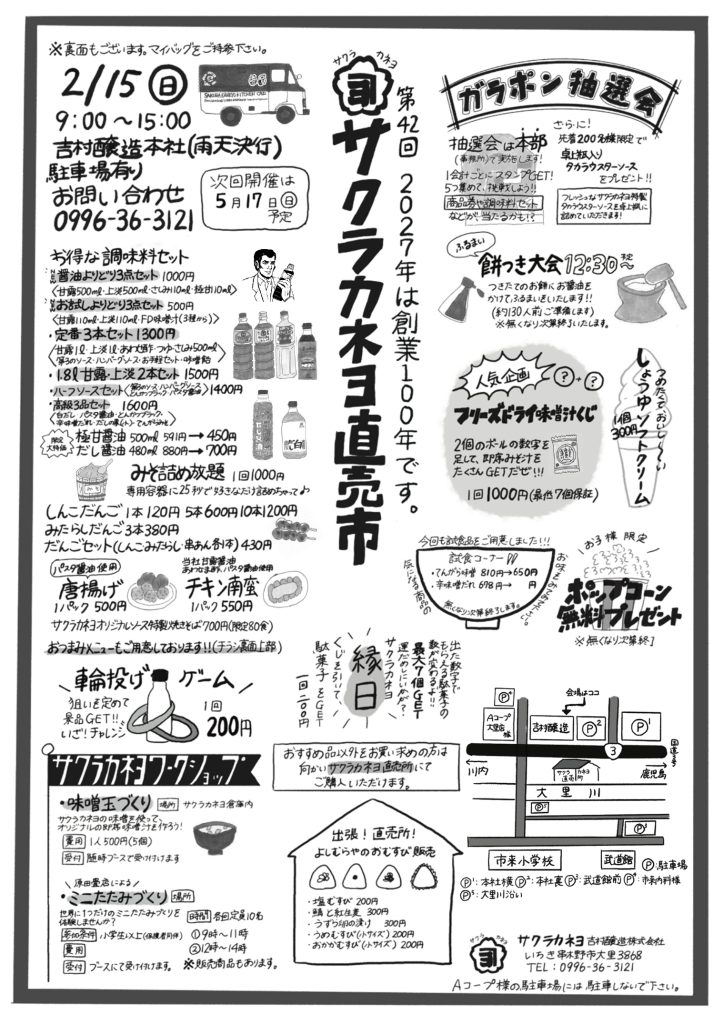 ※裏面もございます。マイバッグをご持参下さい。
2/15(日)
9:00～15:00
吉村醸造本社(雨天決行)
駐車場有り
お問い合わせ
0996-36-3121
次回開催は
5月17日(日)
予定
サクラ カネヨ
ヨ
第42回
サクラカネヨ直売市
2027年は創業100年です。
ガラポン抽選会
抽選会は本部
(事務所)で実施します!
1会計ごとにスタンプGET!
5つ集めて、挑戦しよう!!
商品券や調味料セット
などが、当たるかも!?
さらに!
先着200名様限定で
卓上瓶入り
タカラウスターソース
をプレゼント!!
フレッシュなサクラカネヨ特製
タカラウスターソースを卓上瓶に
詰めていただきます!
ふるまい
餅つき大会12:30～予定
つきたてのお餅にお醤油を
かけてふるまいをいたします!!
(約130人前ご準備します)
※無くなり次第終了いたします。
お得な調味料セット
・醤油よりどり3点セット 1000円
〈甘露500ml・上淡500ml・さしみ110ml・極甘110ml〉
・お試しよりどり3点セット 500円
〈甘露110ml・上淡110ml・FD味噌汁(3種から)〉
・定番3本セット1300円
〈甘露1ℓ・上淡1ℓ・あわせ酢・つゆ・さしみ500ml〉
・1.8ℓ甘露・上淡2本セット 1500円
・ハーフソースセット
1400円
・高級3品セット 1600円
限定大特価
極甘醤油 500ml 591円→450円
だし醤油 480ml 880円→700円
みそ詰め放題 1回1000円
専用容器に25秒で好きなだけ詰めちゃって♪
しんこだんご 1本120円 5本600円 10本1200円
みたらしだんご 3本380円
だんごセット(しんこ・みたらし・串あん各1本) 430円
パスタ醤油使用
唐揚げ
1パック 500円
当社甘露醤油
チキン南蛮
1パック 550円
サクラカネヨオリジナルソース特製焼きそば700円(限定80食)
おつまみメニューもご用意しております!!(チラシ裏面上部)
人気企画
?+?
フリーズドライ味噌汁くじ
2個のボールの数字を
足して、即席みそ汁を
たくさんGETだぜ!!!
1回1000円(最低7個保証)
つめたくておいし～い
しょうゆソフトクリーム
1個300円
今回も試食品をご用意しました!!!
試食コーナー
・てんがら味噌 810円→650円
・辛味噌だれ 698円→ 円
無くなり次第終了します。
気になる商品の
お子様限定
ポップコーン
無料プレゼント
※無くなり次第終了
輪投げゲーム
狙いを定めて
景品GET!!
いざ!チャレンジ
1回
200円
縁日
出た数字で
もらえる駄菓子の
数が変わるよ!!
最大7個GET
運だめしにいかが?
サクラカネヨ
くじを引いて
駄菓子をGET
一回二〇〇円
サクラカネヨワークショップ
・味噌玉づくり 場所 サクラカネヨ倉庫内
サクラカネヨの味噌を使って、
オリジナルの即席味噌汁を作ろう!
費用 1人500円(5個)
受付 随時ブースで受け付けます
原田畳店による
・ミニたたみづくり 場所
世界に1つだけのミニたたみづくりを
体験しませんか?
参加条件 小学生以上(保護者同伴)
費用
受付 ブースにて受け付けます。
時間 各回定員10名
①9時～11時
②12時～14時
※販売商品もあります。
おすすめ品以外をお買い求めの方は
向かいサクラカネヨ直売所にて
ご購入いただけます。
出張!直売所!
よしむらやのおむすび販売
・塩むすび 200円
・鯖と紅生姜 300円
・うずら卵の漬け 300円
・うめむすび(小サイズ) 200円
・おかかむすび(小サイズ) 200円
会場はココ
P⁴
Aコープ
大里店様
吉村醸造
P²
P¹
国道3号
3
川内
サクラカネヨ
直売所
鹿児島
大里川
P⁵
P³
市来小学校
武道館
P:駐車場
P¹:本社横 P²:本社裏 P³:武道館前 P⁴:市来内科様
P⁵:大里川沿い
サクラ カネヨ
ヨ
サクラカネヨ 吉村醸造株式会社
いちき串木野市大里3868
TEL:0996-36-3121
Aコープ様の駐車場には駐車しないで下さい。